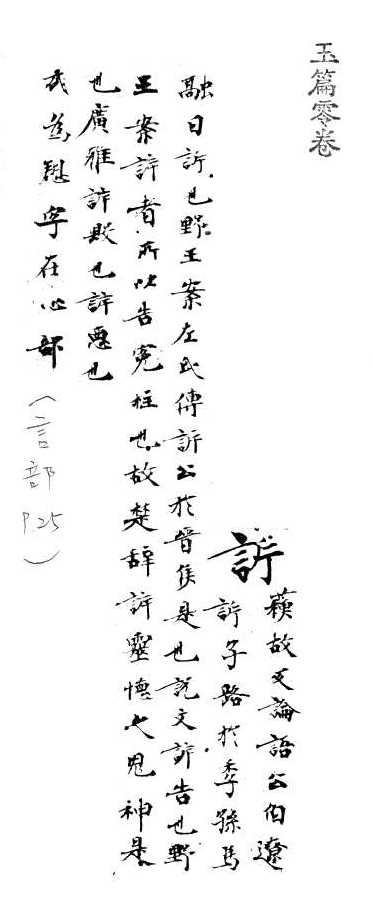 玉篇零卷
訴
蘓故反論語公伯遼
訴子路於季孫馬
融曰訴也野王案左氏傳訴公於晉侯是也說文訴告也野
王案訴者所以告冤枉也故楚辭訴靈懷之鬼神是
也廣雅訴毀也訴惡也
或為愬字在心部
(言部
P.25)